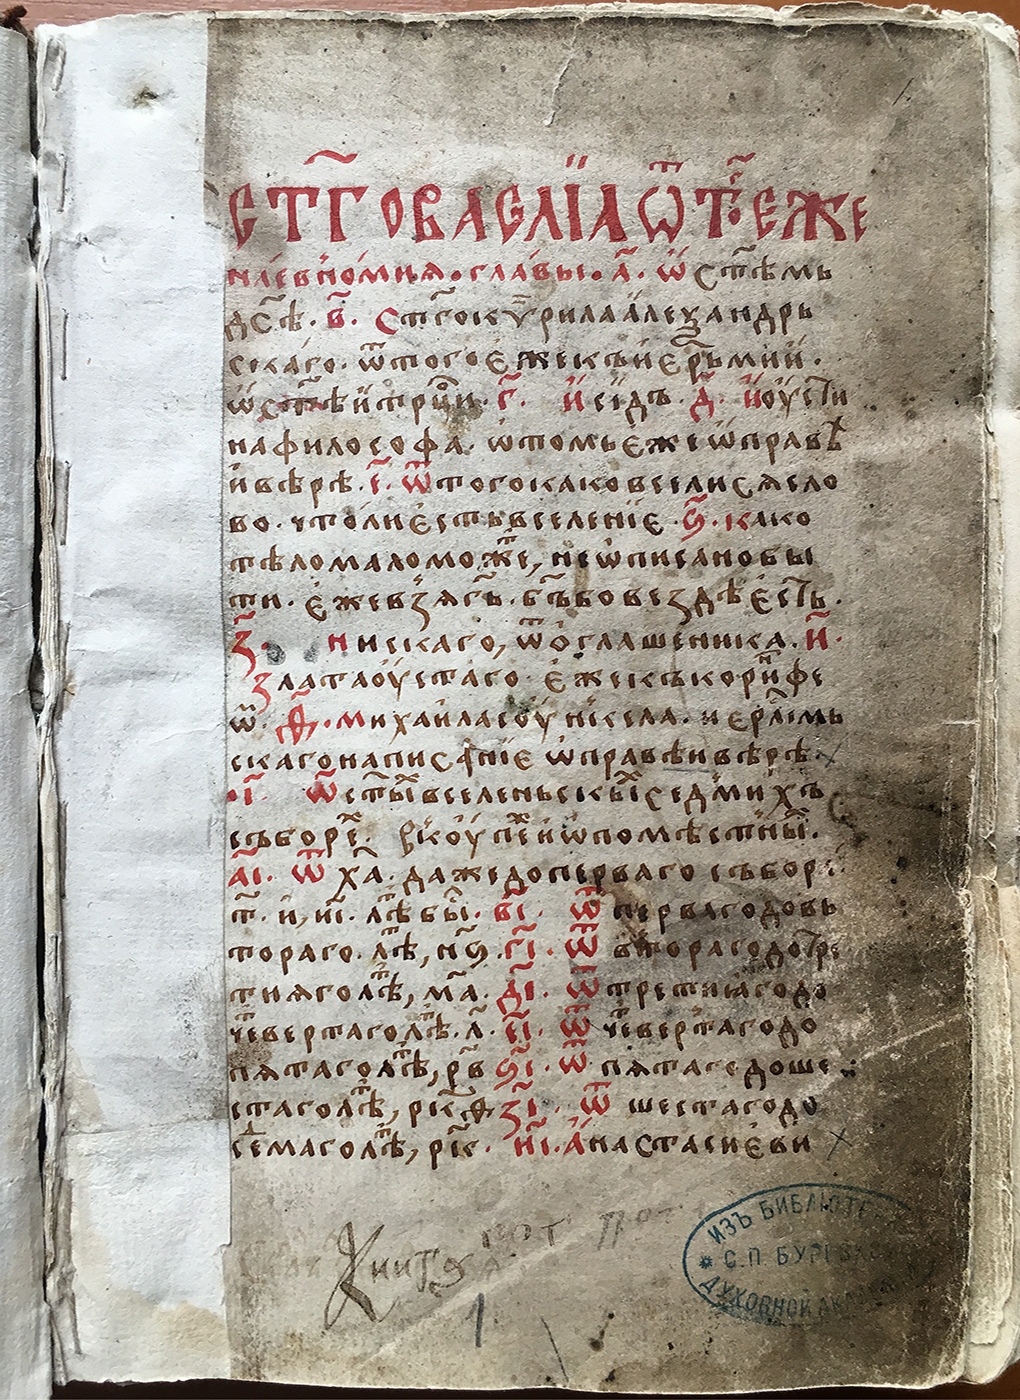 СТГ҃О ВАСЛЇА Ѿ ТО҃ ЕЖЕ
на евномиꙗ · главы · а҃ · ѡ ст҃ѣмь
дс҃ѣ · в҃ · Ст҃го кѷрила алеѯандрь
скаго · ѿ того еже къ и ер҃ьмии ·
ѡ ст҃ѣи трⷪ҇ци · г҃ · исидѡ · д҃ · иоустї
на философа · ѡ томь еже ѡ правѣⷯ
и вѣрѣ · е҃ · ѿ того како вселися сло
во · что ли есть вселенїе · ѕ҃ · како
тѣло мало можеⷮ, не ѡписано бы
ти · еже в ꙗс҃ь · б҃ъ бо везде есть ·
з҃ · нискаго, ѿ оглашеника · и҃ ·
Златаоустаго · еже къ коринѳе
ѡⷨ · ѳ҃ · михаила соуниксела · иерⷭ҇лимь
скаго написанїе ѡ правѣи вѣрѣ
· ı҃ · ѿ ст҃ыⷯ вселеньскыⷯ седмихъ
съборѣ · вкоупѣ и ѡ помѣстныⷯ ·
а҃ı · ѿ х҃а · даже до перваго събора
т҃ · и, и҃ı · лѣⷮ бы · в҃ı · ѿ перваго до вь
тораго · лѣⷮ, н҃ѕ · г҃ı · ѿ втораго до тре
тияго лѣⷮ, м҃а · д҃ı · ѿ третиꙗго до
чеⷮвертаго лѣⷮ · л҃ · е҃ı · ѿ чеⷮвертаго до
пятаго лѣⷮ, р҃в ѕ҃ı · ѿ пятаге до ше
стаго лѣⷮ, рк҃ѳ з҃ı · ѿ шестаго до
семаго лѣⷮ, рк҃ · и҃ı · Анастасиеви
Книга
1
ИЗЪ БИБЛІОТЕ
С.П. БУРГСКО
ДУХОВНОЙ АКАДЕМ